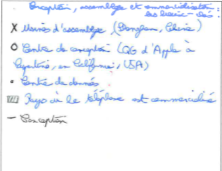 Conception, assemblage et commercialisation
X Usines d'assemblage (Longhua, Chine)
O Centre de conception (QG d'Apple à
Cupertino, en Californie, USA)
Centre de données
Pays où le téléphone est commercialisé
— Conception